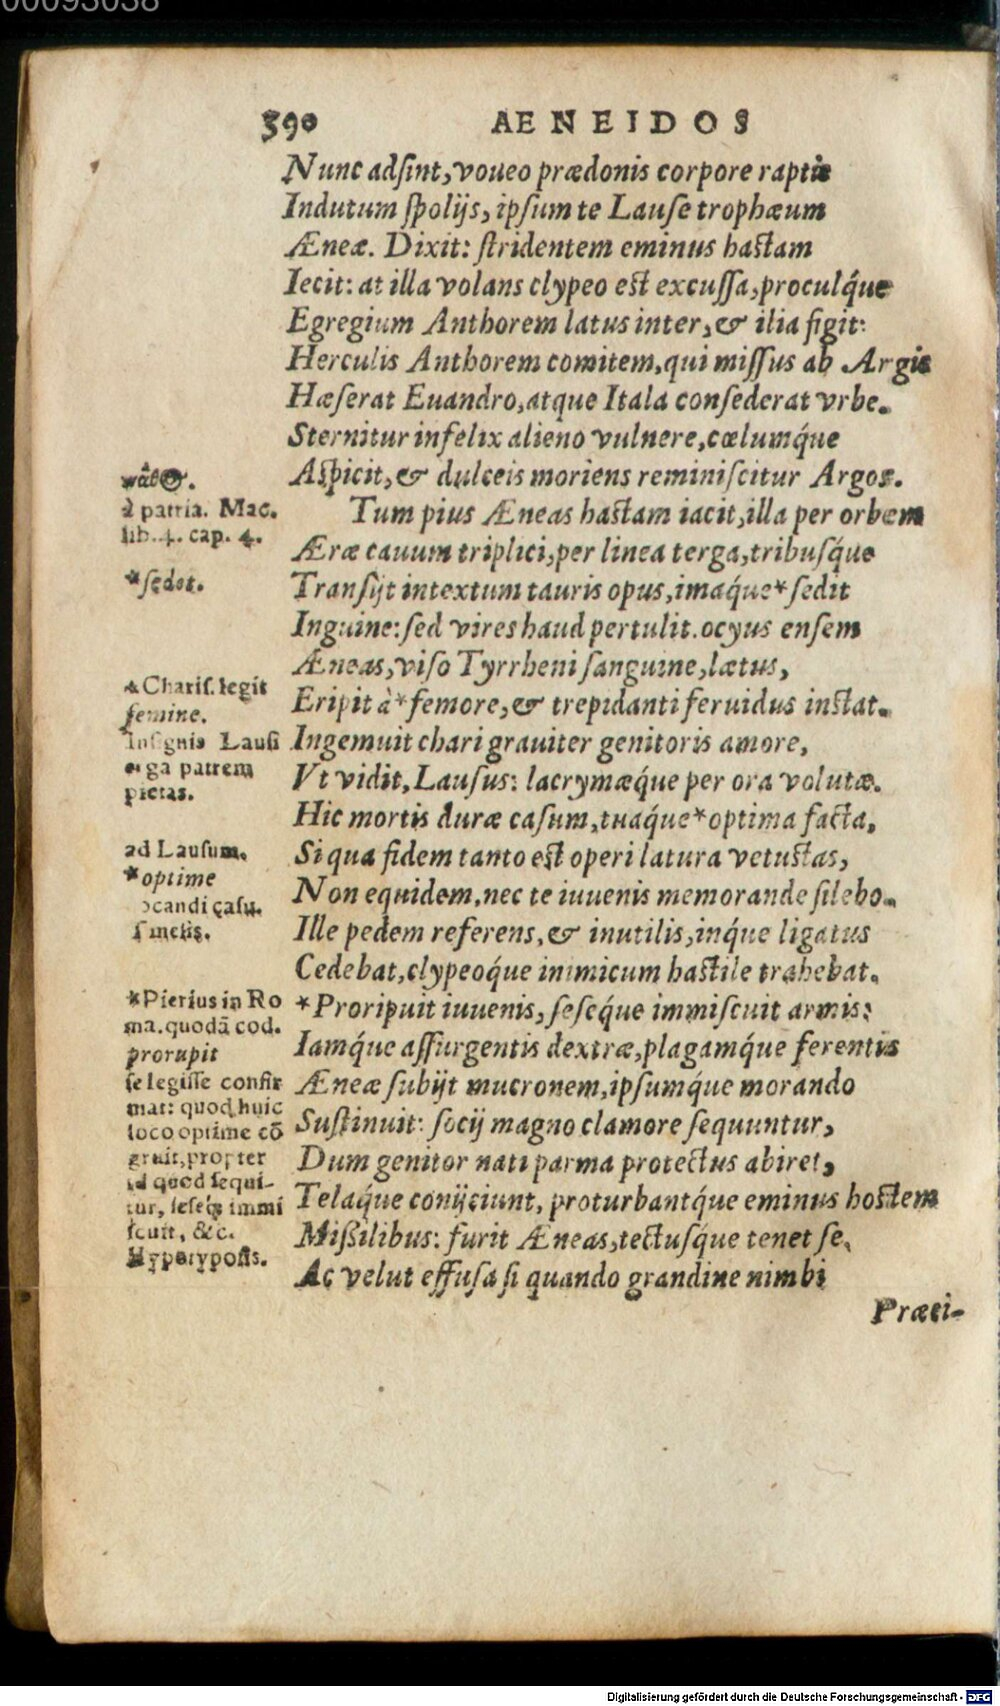 00093038
390 AENEIDOS
Nunc adſint, voueo prædonis corpore raptis
Indutum ſpolijs, ipſum te Lauſe trophæum
Æneæ. Dixit: ſtridentem eminus haſtam
Iecit: at illa volans clypeo eſt excuſſa, proculq́ue
Egregium Anthorem latus inter, & ilia figit:
Herculis Anthorem comitem, qui miſſus ab Argis
Hæſerat Euandro, atque Itala conſederat vrbe.
Sternitur infelix alieno vulnere, cœlumq́ue
Aſpicit, & dulceis moriens reminiſcitur Argos.
Tum pius Æneas haſtam iacit, illa per orbem
Æræ cauum triplici, per linea terga, tribuſq́ue
Tranſijt intextum tauris opus, imaq́ue * ſedit
Inguine: ſed vires haud pertulit. ocyus enſem
Æneas, viſo Tyrrheni ſanguine, lætus,
Eripit à * femore, & trepidanti feruidus inſtat.
Ingemuit chari grauiter genitoris amore,
Vt vidit, Lauſus: lacrymæq́ue per ora volutæ.
Hic mortis duræ caſum, tuaq́ue * optima facta,
Si qua fidem tanto eſt operi latura vetuſtas,
Non equidem, nec te iuuenis memorande ſilebo.
Ille pedem referens, & inutilis, inq́ue ligatus
Cedebat, clypeoq́ue inimicum haſtile trahebat.
* Proripuit iuuenis, ſeſeq́ue immiſcuit armis:
Iamq́ue aſſurgentis dextræ, plagamq́ue ferentis
Æneæ ſubijt mucronem, ipſumq́ue morando
Suſtinuit: ſocij magno clamore ſequuntur,
Dum genitor nati parma protectus abiret,
Telaq́ue conijciunt, proturbantq́ue eminus hoſtem
Mißilibus: furit Æneas, tectuſq́ue tenet ſe.
Ac velut effuſa ſi quando grandine nimbi
Præci-
à patria. Mac.
lib. 4. cap. 4.
* ſedet.
* Chariſ. legit
femine.
Inſignis Lauſi
erga patrem
pietas.
ad Lauſum.
* optime
vocandi caſu.
* Pierius in Ro
ma. quodã cod.
prorupit
ſe legiſſe confir
mat: quod huic
loco optime cõ
gruit, propter
id quod ſequi-
tur, ſeſeq́; immi
ſcuit, &c.
Hypotypoſis.
Digitalisierung gefördert durch die Deutsche Forschungsgemeinschaft - DFG